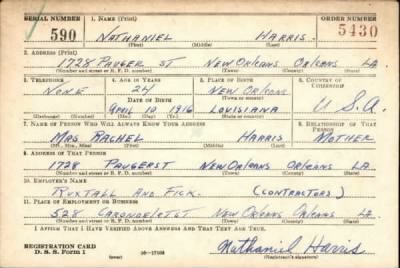 SERIAL NUMBER 1. NAME (Print) ORDER NUMBER
590 NATHANIEL HARRIS. 5430
(First) (Middle) (Last)
2. ADDRESS (Print)
1728 PAUGER ST NEW ORLEANS ORLEANS LA.
(Number and street or R. F. D. number) (Town) (County) (State)
3. TELEPHONE 4. AGE IN YEARS 5. PLACE OF BIRTH 6. COUNTRY OF CITIZENSHIP
NONE 24 NEW ORLEANS
DATE OF BIRTH (Town or county)
APRIL 12 1916 LOUISIANA U S.A.
(Exchange) (Number) (Mo.) (Day) (Yr.) (State or country)
7. NAME OF PERSON WHO WILL ALWAYS KNOW YOUR ADDRESS 8. RELATIONSHIP OF THAT PERSON
MRS RACHEL HARRIS MOTHER
(Mr., Mrs., Miss) (First) (Middle) (Last)
9. ADDRESS OF THAT PERSON
1728 PAUGER ST NEW ORLEANS ORLEANS LA.
(Number and street or R. F. D. number) (Town) (County) (State)
10. EMPLOYER'S NAME
AND FICK. (CONTRACTORS)
11. PLACE OF EMPLOYMENT OR BUSINESS
528 CARONDELET ST NEW ORLEANS ORLEANS LA.
(Number and street or R. F. D. number) (Town) (County) (State)
I AFFIRM THAT I HAVE VERIFIED ABOVE ANSWERS AND THAT THEY ARE TRUE.
REGISTRATION CARD
D. S. S. Form 1 (over) Nathaniel Harris